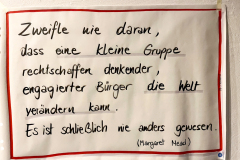 Zweifle nie daran,
dass eine kleine Gruppe
rechtschaffen denkender,
engagierter Bürger die Welt
verändern kann.
Es ist schließlich nie anders gewesen.
(Margaret Mead)